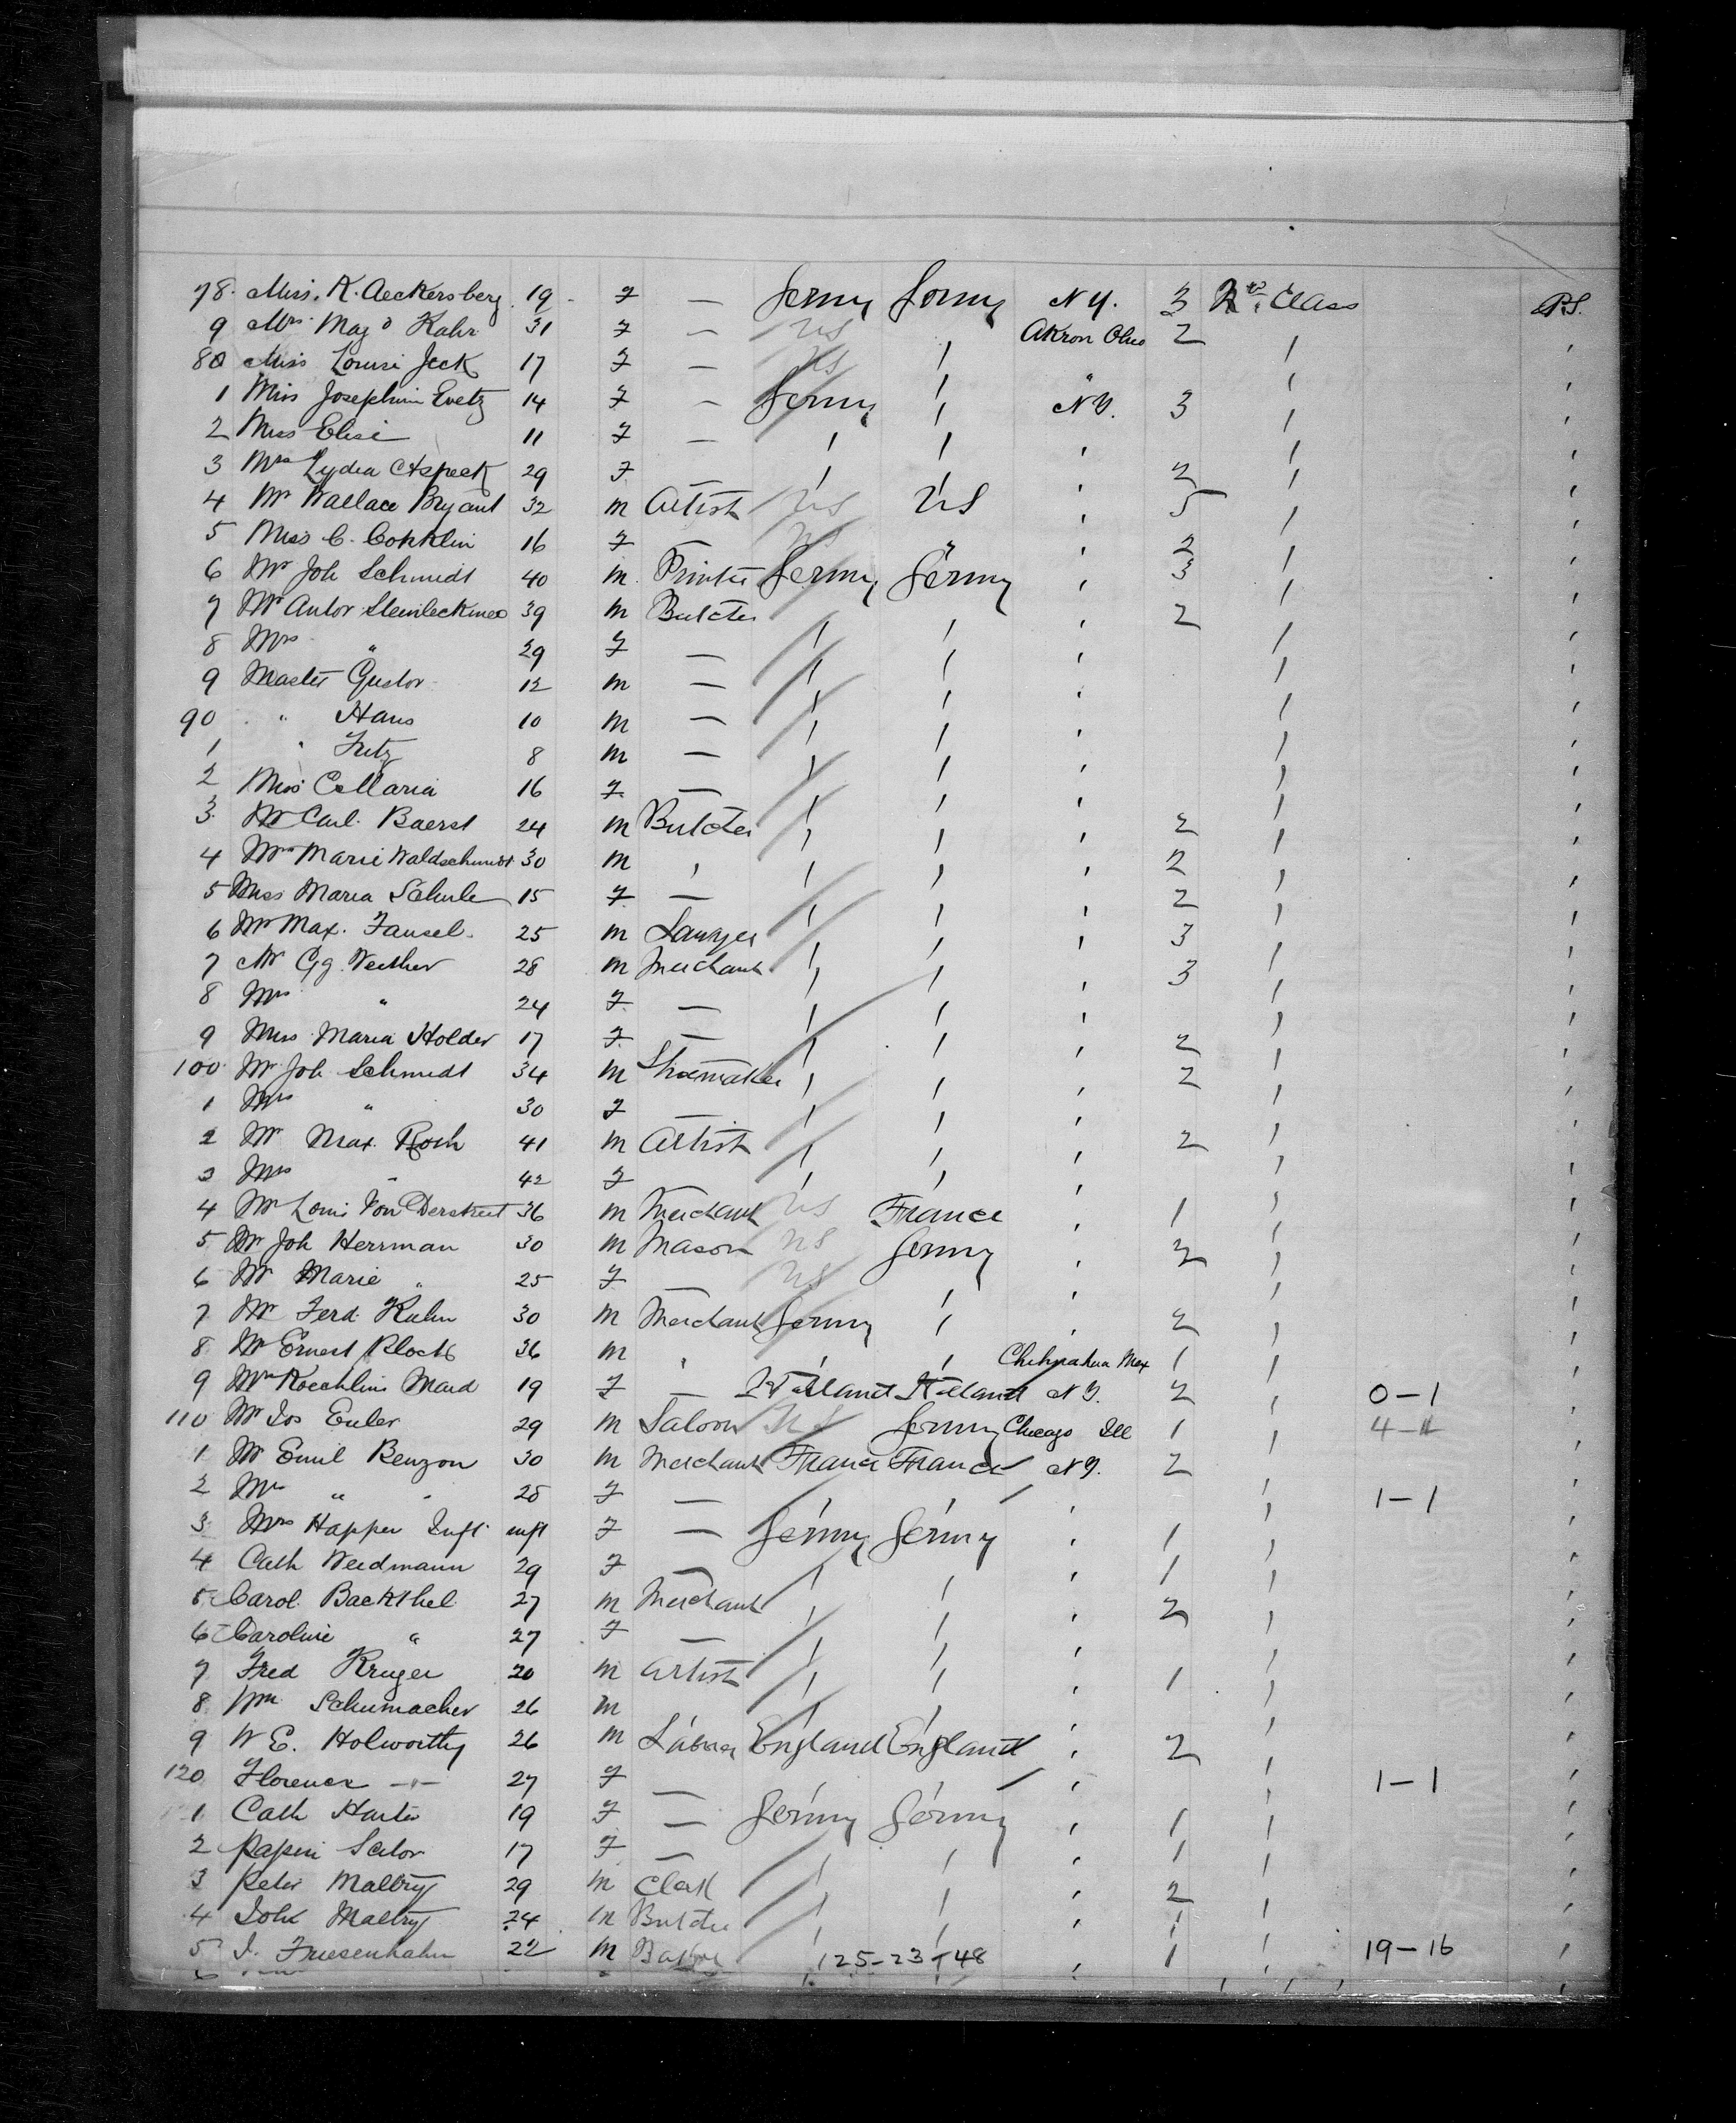 78. Miss. K. Aeckersberg 19 - F — Germy Germy N Y. 3 2nd Class P.S.
9 Mrs Magd Kahr 31 F — US Akron Ohio 2 /
80 Miss Louise Jeck 17 F — US / " /
1 Miss Josephine Evetz 14 F — Germy / N Y. 3 /
2 Miss Elise 11 F — / / ' /
3 Mrs Lydia Aspeck 29 F. — / / ' 2 /
4 Mr Wallace Bryant 32 m Artist US US ' 5 /
5 Miss C. Conklin 16 F — US " ' 2 /
6 Mr Joh Schmidt 40 m. Printer Germy Germy ' 3 /
7 Mr Anton 39 m Butcher / / ' 2 /
8 Mrs " 29 F — / / ' /
9 Master Gustov 12 m — / / ' /
90 " Hans 10 m — / / ' /
1 " Fritz 8 m — / / ' /
2 Miss 16 F. — / / ' /
3. Mr Carl. Baerst 24 m Butcher / / ' 2 /
4 Mrs Marie Waldschmidt 30 m ' / / ' 2 /
5 Miss Maria Schule 15 F — / / ' 2 /
6 Mr Max. Fausel. 25 m Lawyer / / ' 3 /
7 Mr Gg. Veither 28 m Merchant / / ' 3 /
8 Mrs " 24 F. — / / ' /
9 Miss Maria Holder 17 F. — / / ' 2 /
100 Mr Joh Schmidt 34 m Shoemaker / / ' 2 /
1 Mrs " 30 F — / / ' /
2 Mr Max. Roth 41 m Artist / / ' 2 /
3 Mrs " 42 F — / / ' /
4 Mr Louis Von 36 m Merchant US France ' 1 /
5 Mr Joh Herrman 30 m Mason US Germy ' 2 /
6 Mr Marie " 25 F — US / ' /
7 Mr Ferd. Kuhn 30 m Merchant Germy / ' 2 /
8 Mr Ernest Block 36 m ' / / Chihuahua Mex 1 /
9 Mrs Koechlins Maid 19 F — Holland Holland N Y. 2 / 0-1
110 Mr Jos Euler 29 m Saloon US Germy Chicago Ill 1 / 4-
1 Mr Emil Benzon 30 m Merchant France France N Y. 2 /
2 Mrs " " 28 F — / / ' / 1-1
3 Mrs Happer Inft inft F — Germy Germy ' 1 /
4 Cath Weidmann 29 F — / / ' 1 /
5 Carol. Backthel 27 m Merchant / / ' 2 /
6 Caroline " 27 F — / / ' /
7 Fred Kruger 20 m Artist / / ' 1 /
8 Wm Schumacher 26 m / / ' /
9 W E. Holworthy 26 m Labour England England ' 2 /
120 Florence —"— 27 F — / / ' / 1-1
1 Cath Harter 19 F — Germy Germy ' 1 /
2 Sailor 17 F — / / ' 1 /
3 Peter Maltry 29 m Clerk / / ' 2 /
4 John Maltry 24 m Butcher / / ' 1 /
5 J. Friesenhahn 22 m 125-23-48 ' 1 / 19-16